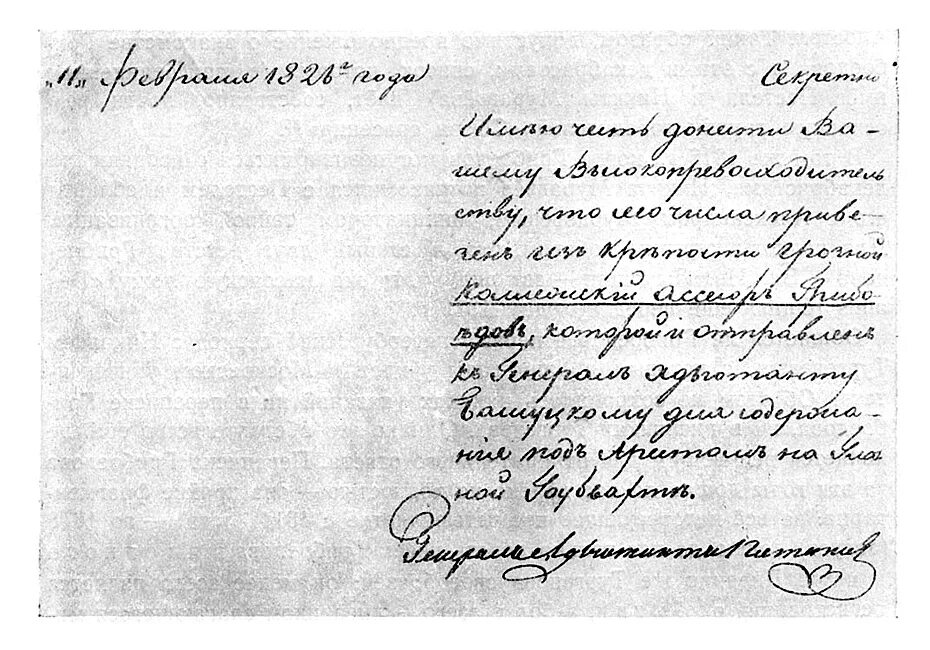 „11„ февраля 1826го года
Секретно
Имѣю честь донести Ва-
шему Высокопревосходитель
ству, что сего числа приве-
зенъ изъ крѣпости грозной
Коллежскій Ассесоръ Грибо
ѣдовъ, которой и отправленъ
къ Генералъ Адъютанту
Башуцкому для содержа-
нія подъ Арестомъ на Глав
ной Гоубвартѣ.
Генералъ Адъютантъ Потаповъ